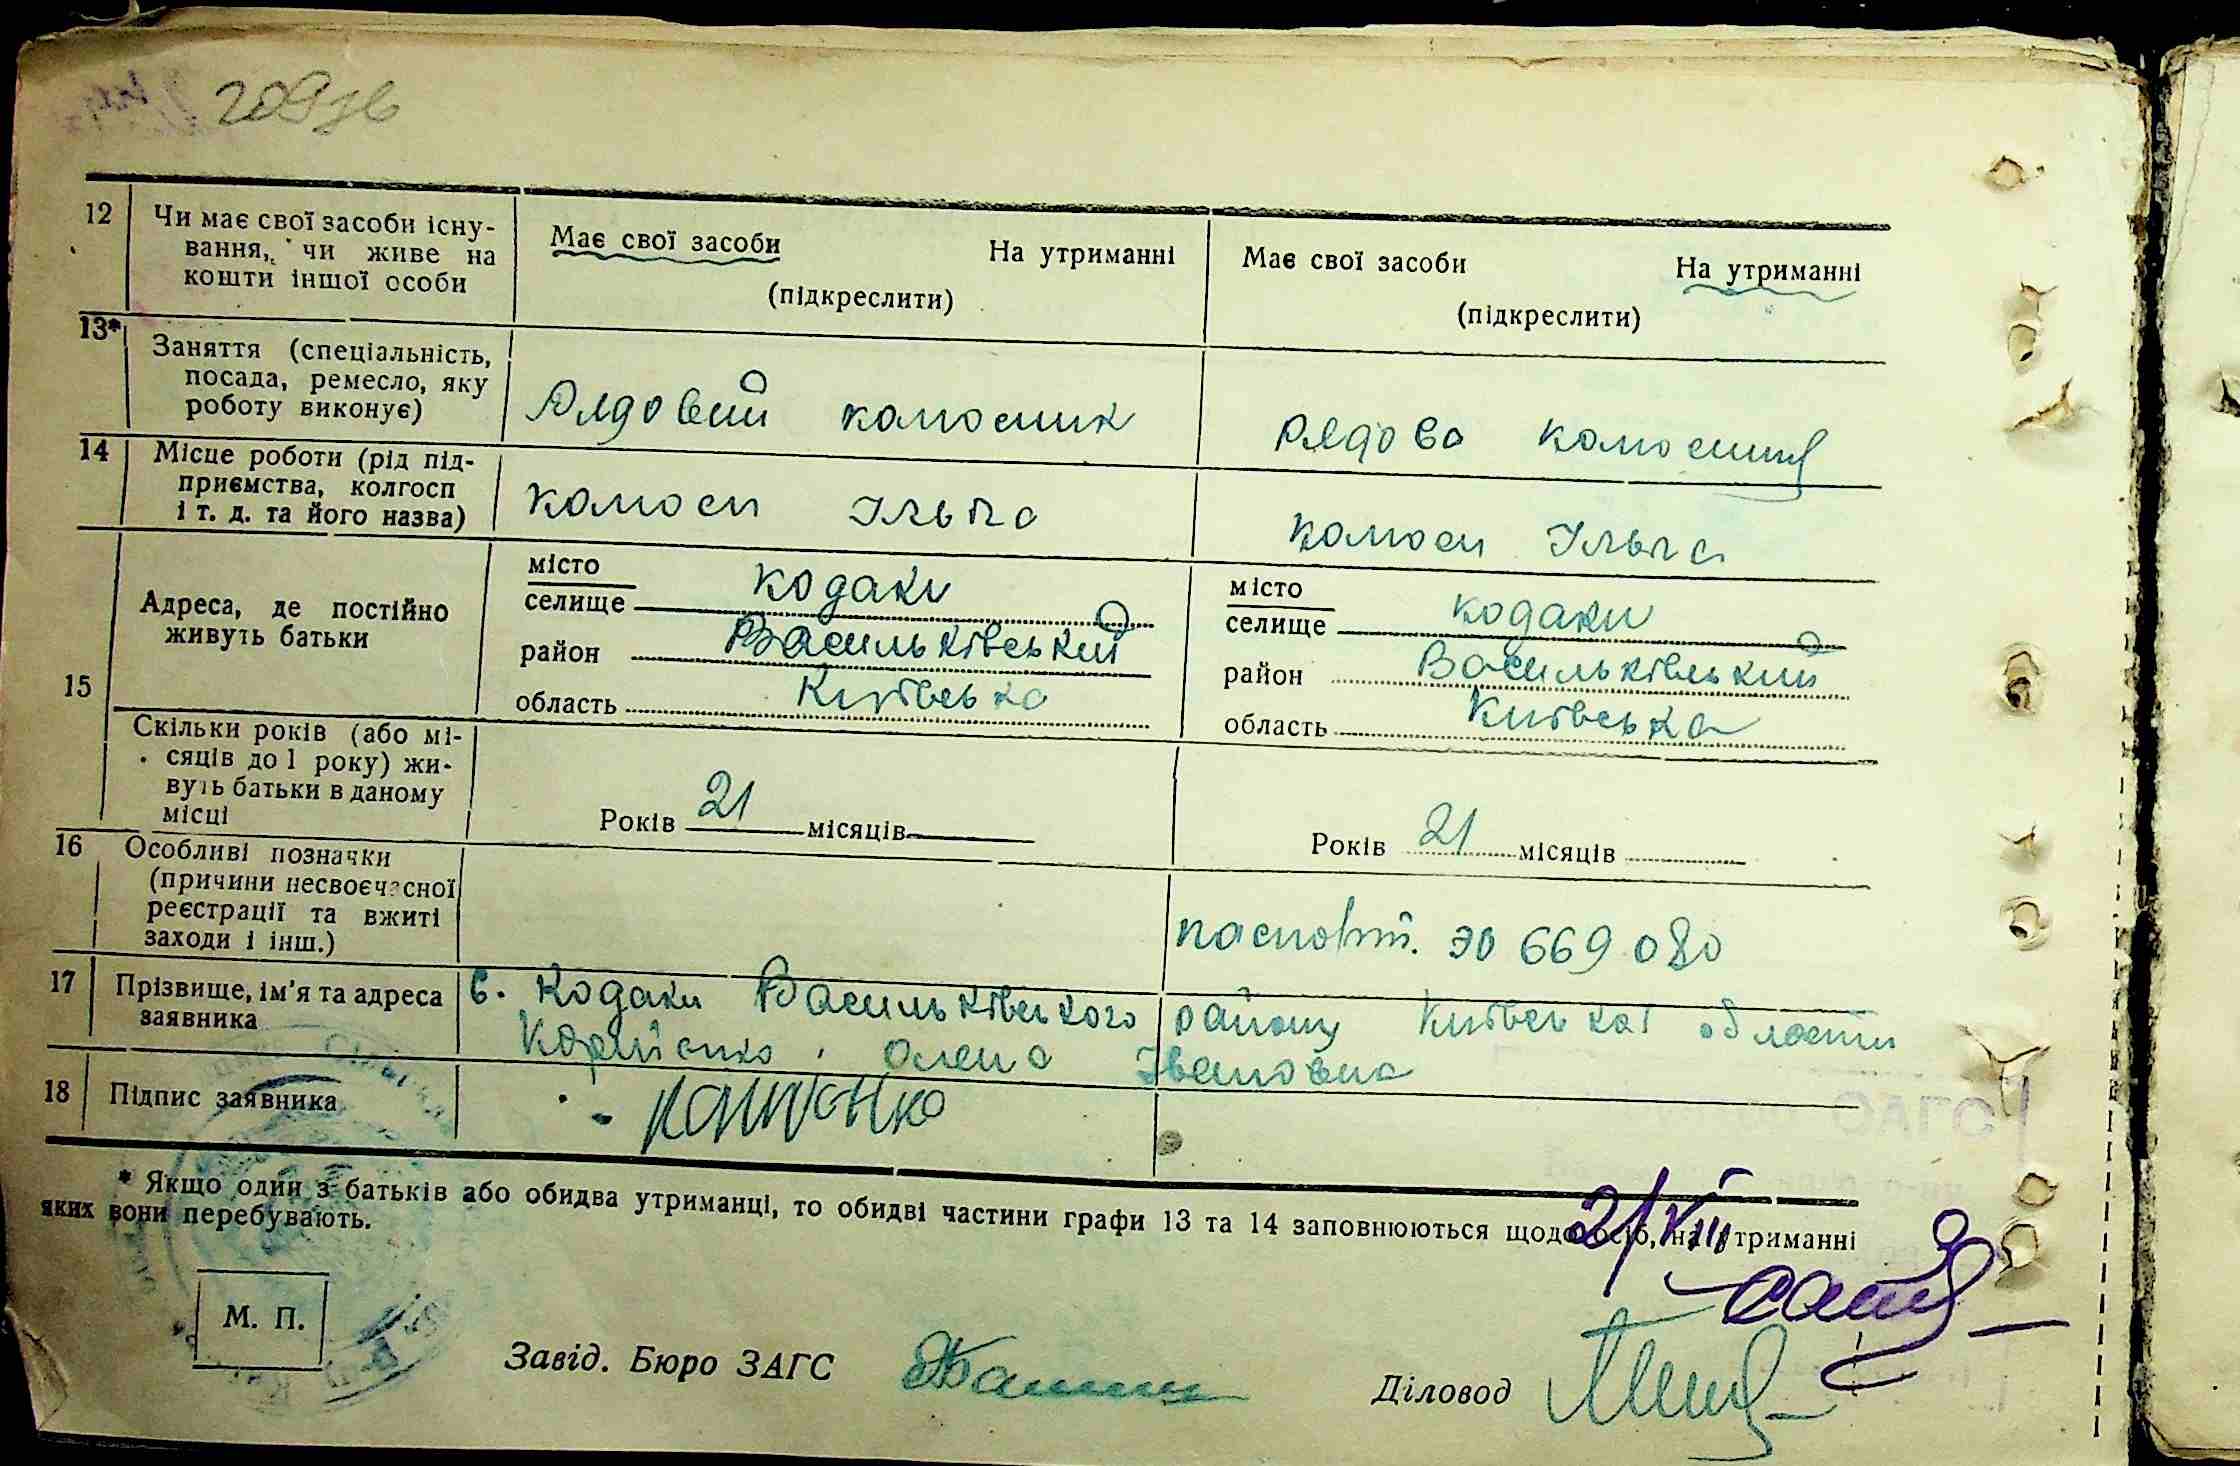 209зв
12 Чи має свої засоби існу-
вання, чи живе на
кошти іншої особи
Має свої засоби На утриманні
(підкреслити)
Має свої засоби На утриманні
(підкреслити)
13* Заняття (спеціальність,
посада, ремесло, яку
роботу виконує)
Рядовий колгоспник
рядова колгоспниця
14 Місце роботи (рід під-
приємства, колгосп
і т. д. та його назва)
колгосп Ілліча
колгосп Ілліча
15 Адреса, де постійно
живуть батьки
місто
селище Кодаки
район Васильківський
область Київська
місто
селище Кодаки
район Васильківський
область Київська
Скільки років (або мі-
сяців до 1 року) жи-
вуть батьки в даному
місці
Років 21 місяців
Років 21 місяців
16 Особливі позначки
(причини несвоєчасної
реєстрації та вжиті
заходи і інш.)
паспорт. ЭО 669080
17 Прізвище, ім'я та адреса
заявника
с. Кодаки Васильківського району Київської области
Олена Івановна
18 Підпис заявника
* Якщо один з батьків або обидва утриманці, то обидві частини графи 13 та 14 заповнюються щодо осіб, на утриманні
яких вони перебувають.
21/VIII
М. П.
Завід. Бюро ЗАГС
Діловод
ЗАГС